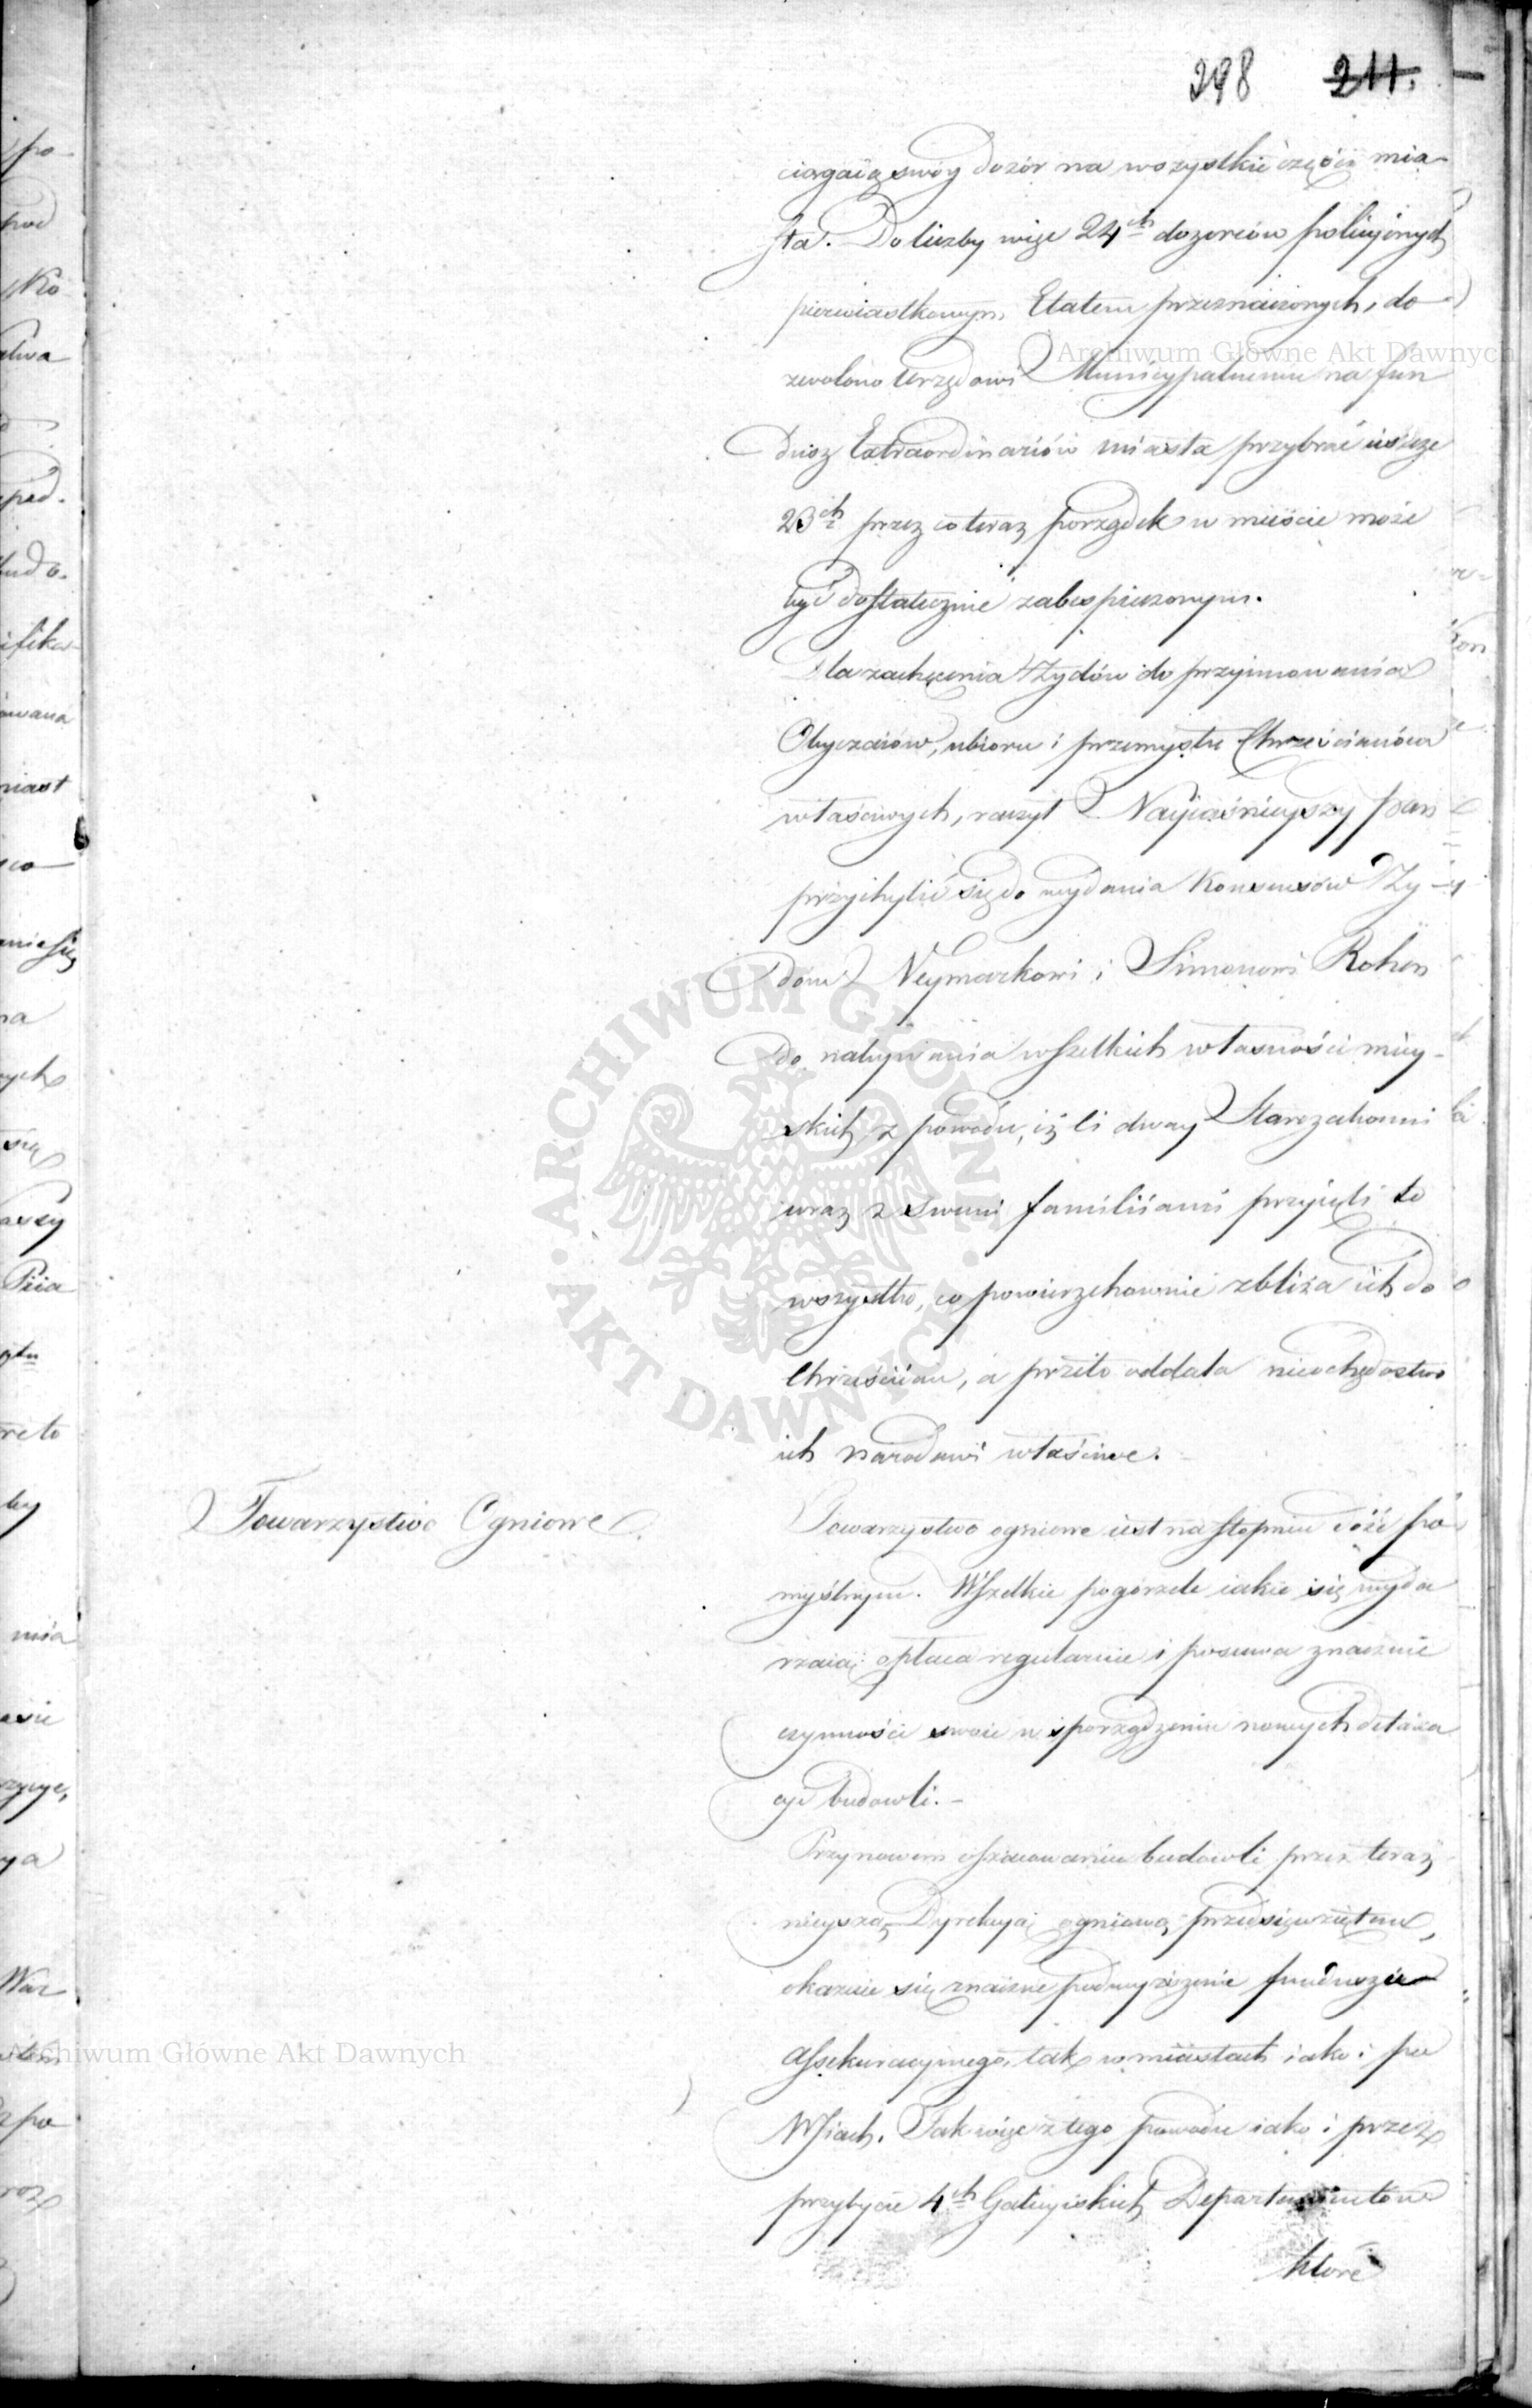 298 211.
ciągaią swóy dozór na wszystkie części mia-
sta. Do liczby więc 24ch dozorców policyjnych
pierwiastkowym Etatem przeznaczonych, do-
zwolono Urzędowi Municypalnemu na fun
dusz Extraordinariów miasta przybrać ieszcze
23ch przez co teraz porządek w mieście może
być dostatecznie zabespieczonym.
Dla zachęcenia Żydów do przyimowania
Obyczaiów, ubioru i przemysłu Chrześcianów
właściwych, raczył Nayiaśnieyszy Pan
przychylić się do wydania Konsensów Ży-
dom Neymarkowi i Simonowi Rohen
do nabywania wszelkich własności miey-
skich z powodu, iż ci dway Starozakonni
wraz z swemi familiiami przyięli to
wszystko, co powierzchownie zbliża ich do
Chrześciian, a przeto oddala nieochędostwo
ich narodowi właściwe.
Towarzystwo Ogniowe.
Towarzystwo ogniowe iest na stopniu dość po-
myślnym. Wszelkie pogorzele iakie się wyda
rzaią opłaca regularnie i posuwa znacznie
czynności swoie w sporządzeniu nowych detaxa
cyi budowli.-
Przy nowem oszacowaniu budowli przez teraz
nieyszą Dyrekcyą ogniową przedsięwziętem,
okazuie się znaczne podwyższenie funduszu
Assekuracyinego, tak w miastach iako i po
Wsiach. Tak więc z tego powodu iako i przez
przybycie 4ch Galicyiskich Departamentów
które
Archiwum Główne Akt Dawnych
ARCHIWUM GŁÓWNE · AKT DAWNYCH ·
Archiwum Główne Akt Dawnych